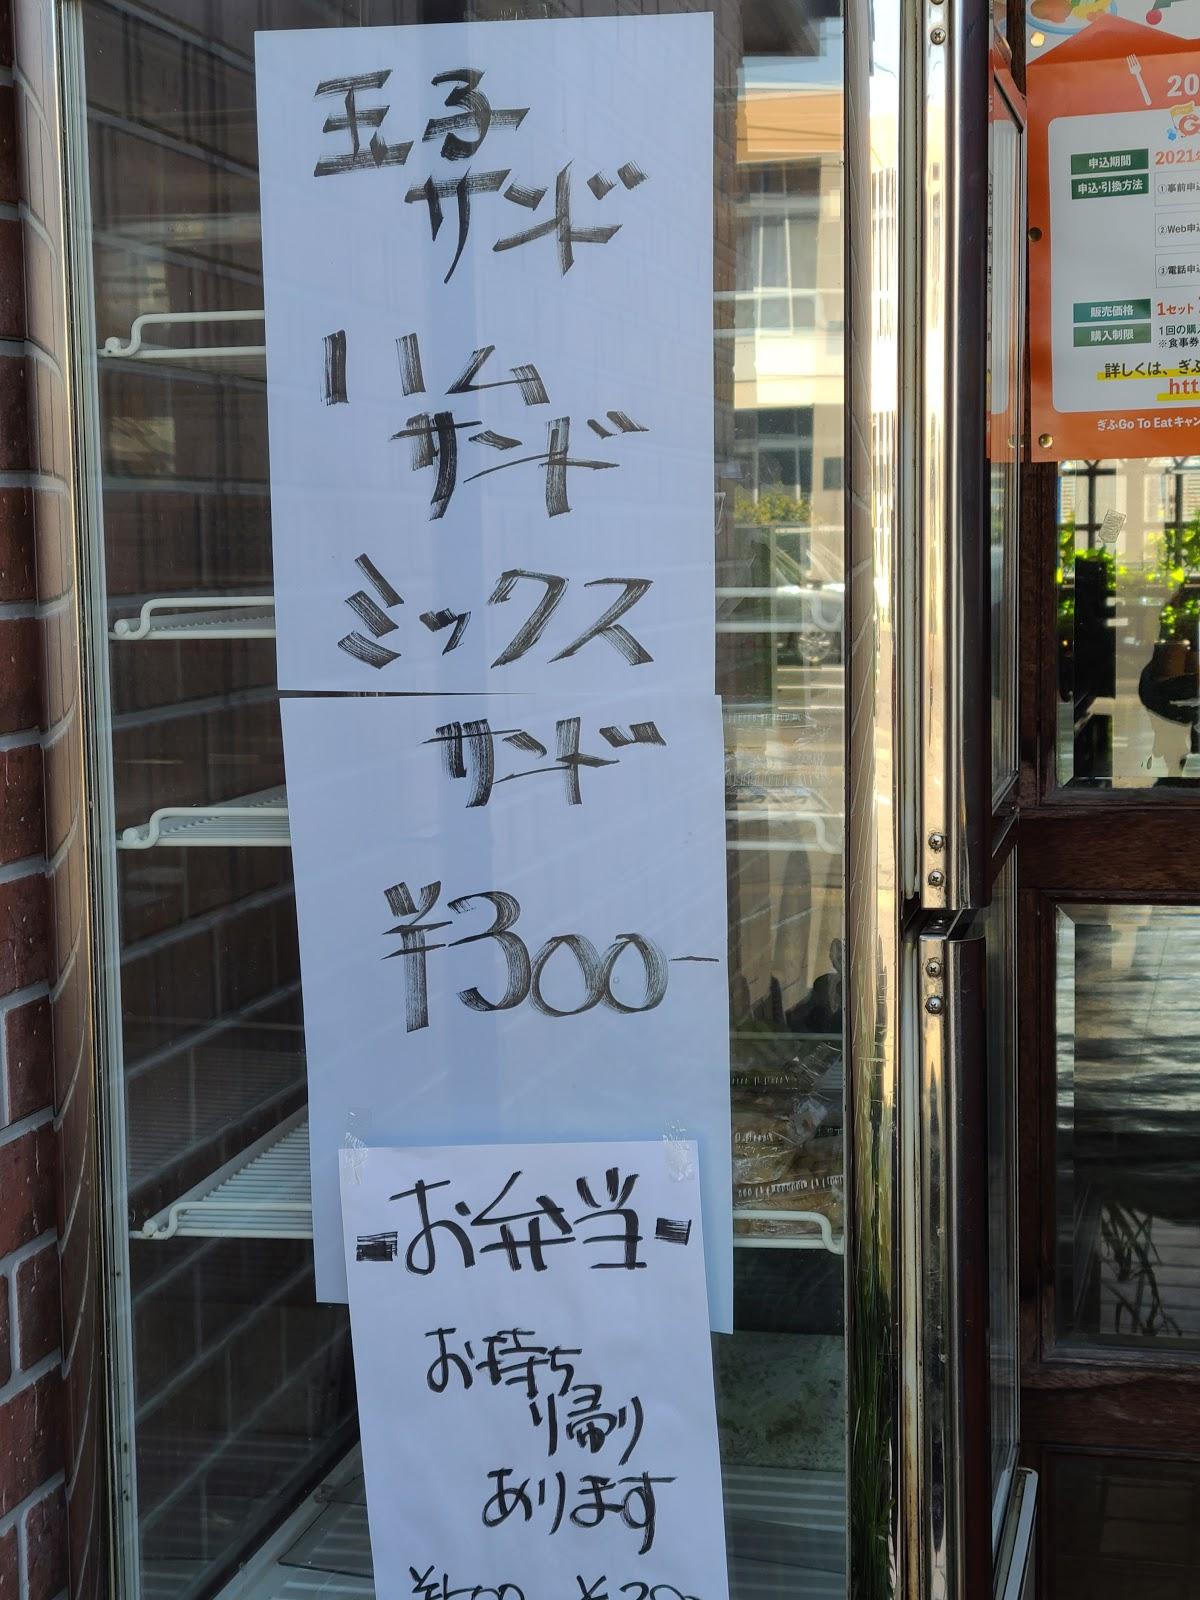 玉子
サンド
ハム
サンド
ミックス
サンド
¥300-
お弁当
お持ち
り帰り
あります
20
申込期間
2021
申込・引換方法
①事前申込
②Web申込
③電話申込
販売価格
1セット
購入制限
1回の購入
※食事券
詳しくは、ぎふ
htt
ぎふGo To Eatキャン